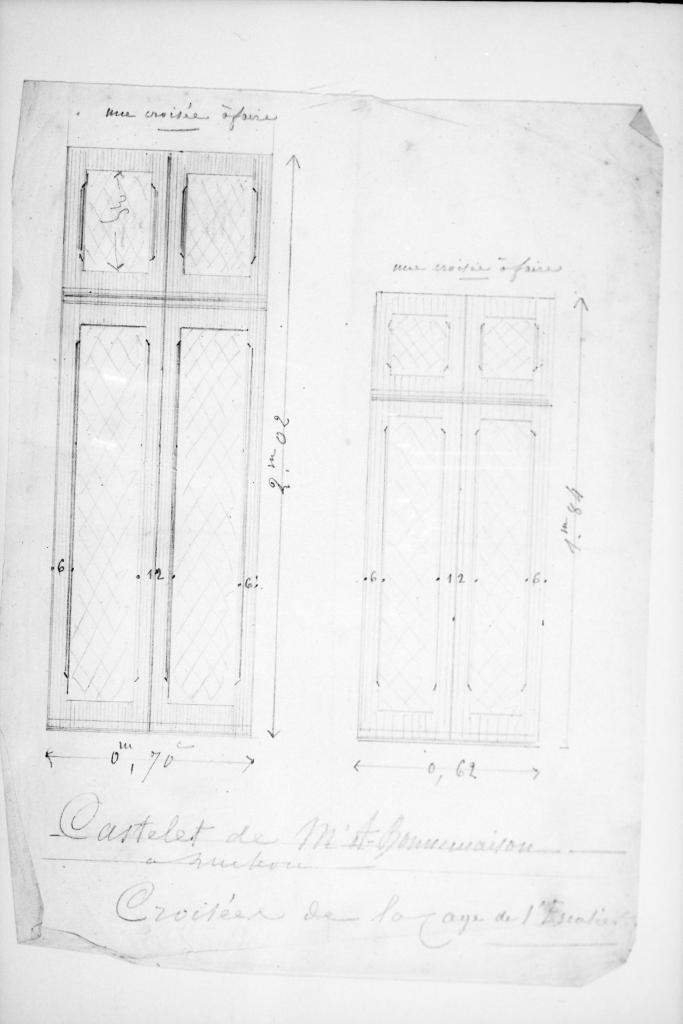 une croisée à faire
une croisée à faire
2m.02
1m.84
6 12 6
6 12 6
0m,70c
0,62
Castelet de Mr A. Bonnemaison
à
Croisées de la cage de l'Escalier